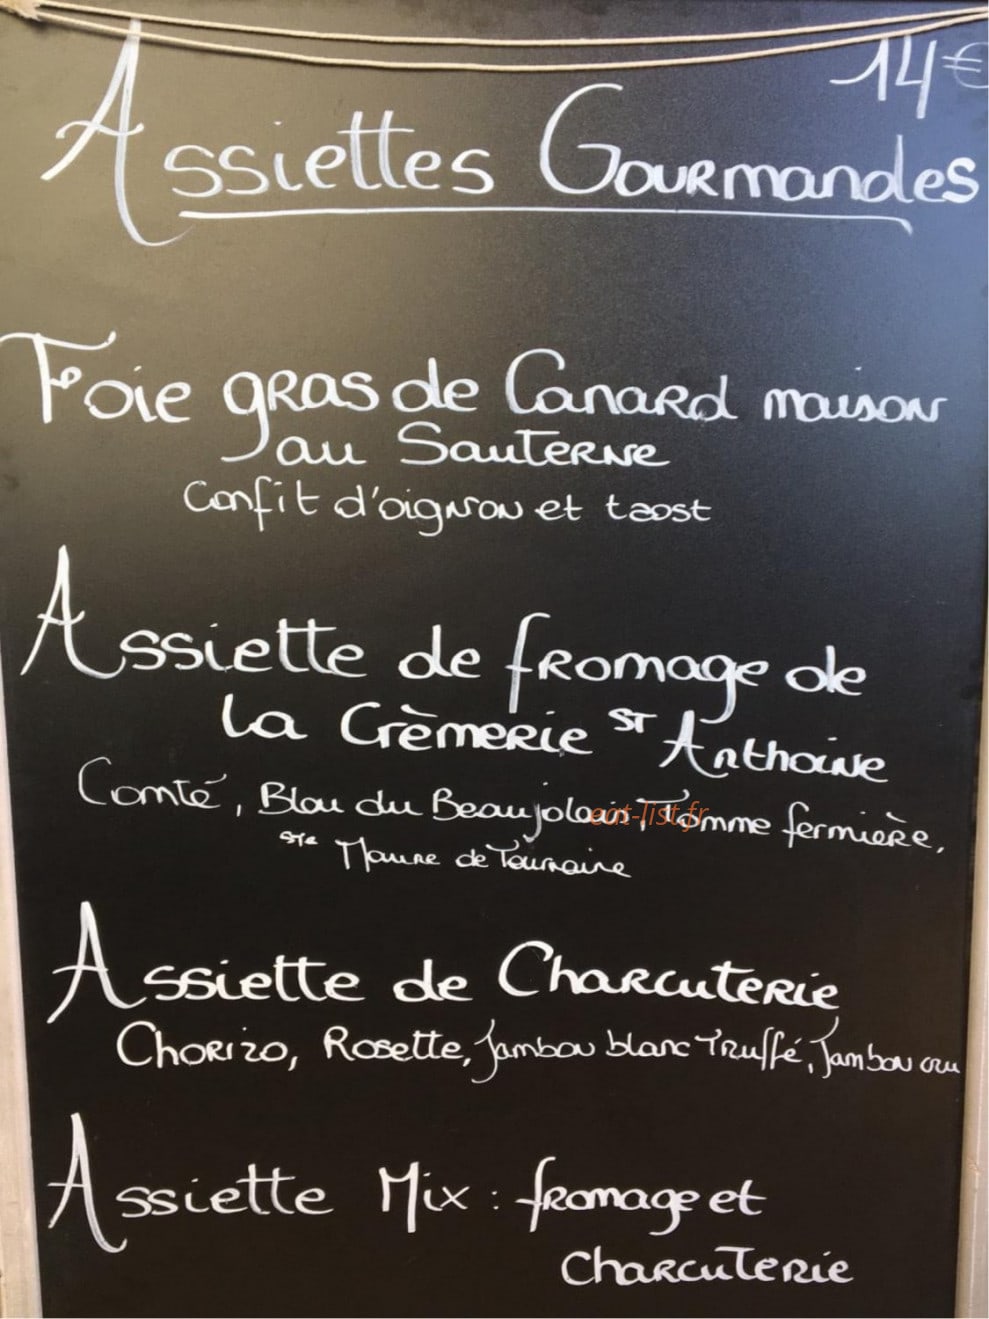 14€
Assiettes Gourmandes
Foie gras de Canard maison
au Sauterne
Confit d'oignon et taost
Assiette de fromage de
la Crèmerie ST Anthoine
Comté, Bleu du Beaujolais, Tomme fermière,
Ste Maure de Tourraine
eat-list.fr
Assiette de Charcuterie
Chorizo, Rosette, Jambon blanc Truffé, Jambon cru
Assiette Mix : fromage et
Charcuterie